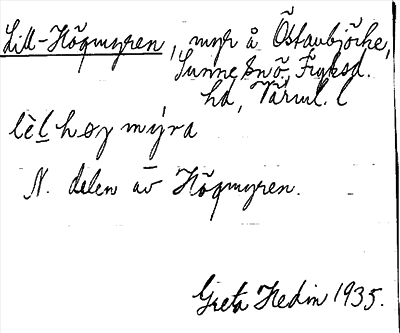 Lill-Högmyren, myr å Östanbjörke,
Sunne snö, Fryksd.
hd, Värml. l
lèl høg mýra
N. delen av Högmyren.
Greta Hedin 1935.